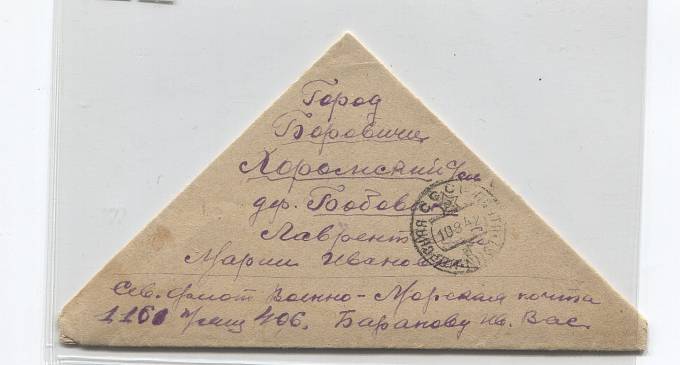 Город
Боровичи
Хоромский с/с
дер. Бобов
Лаврент
Марии Иванов
Сев. флот Военно-Морская почта
1161 п/ящ 406. Баранову Ив. Вас.
СССР
10 8 42